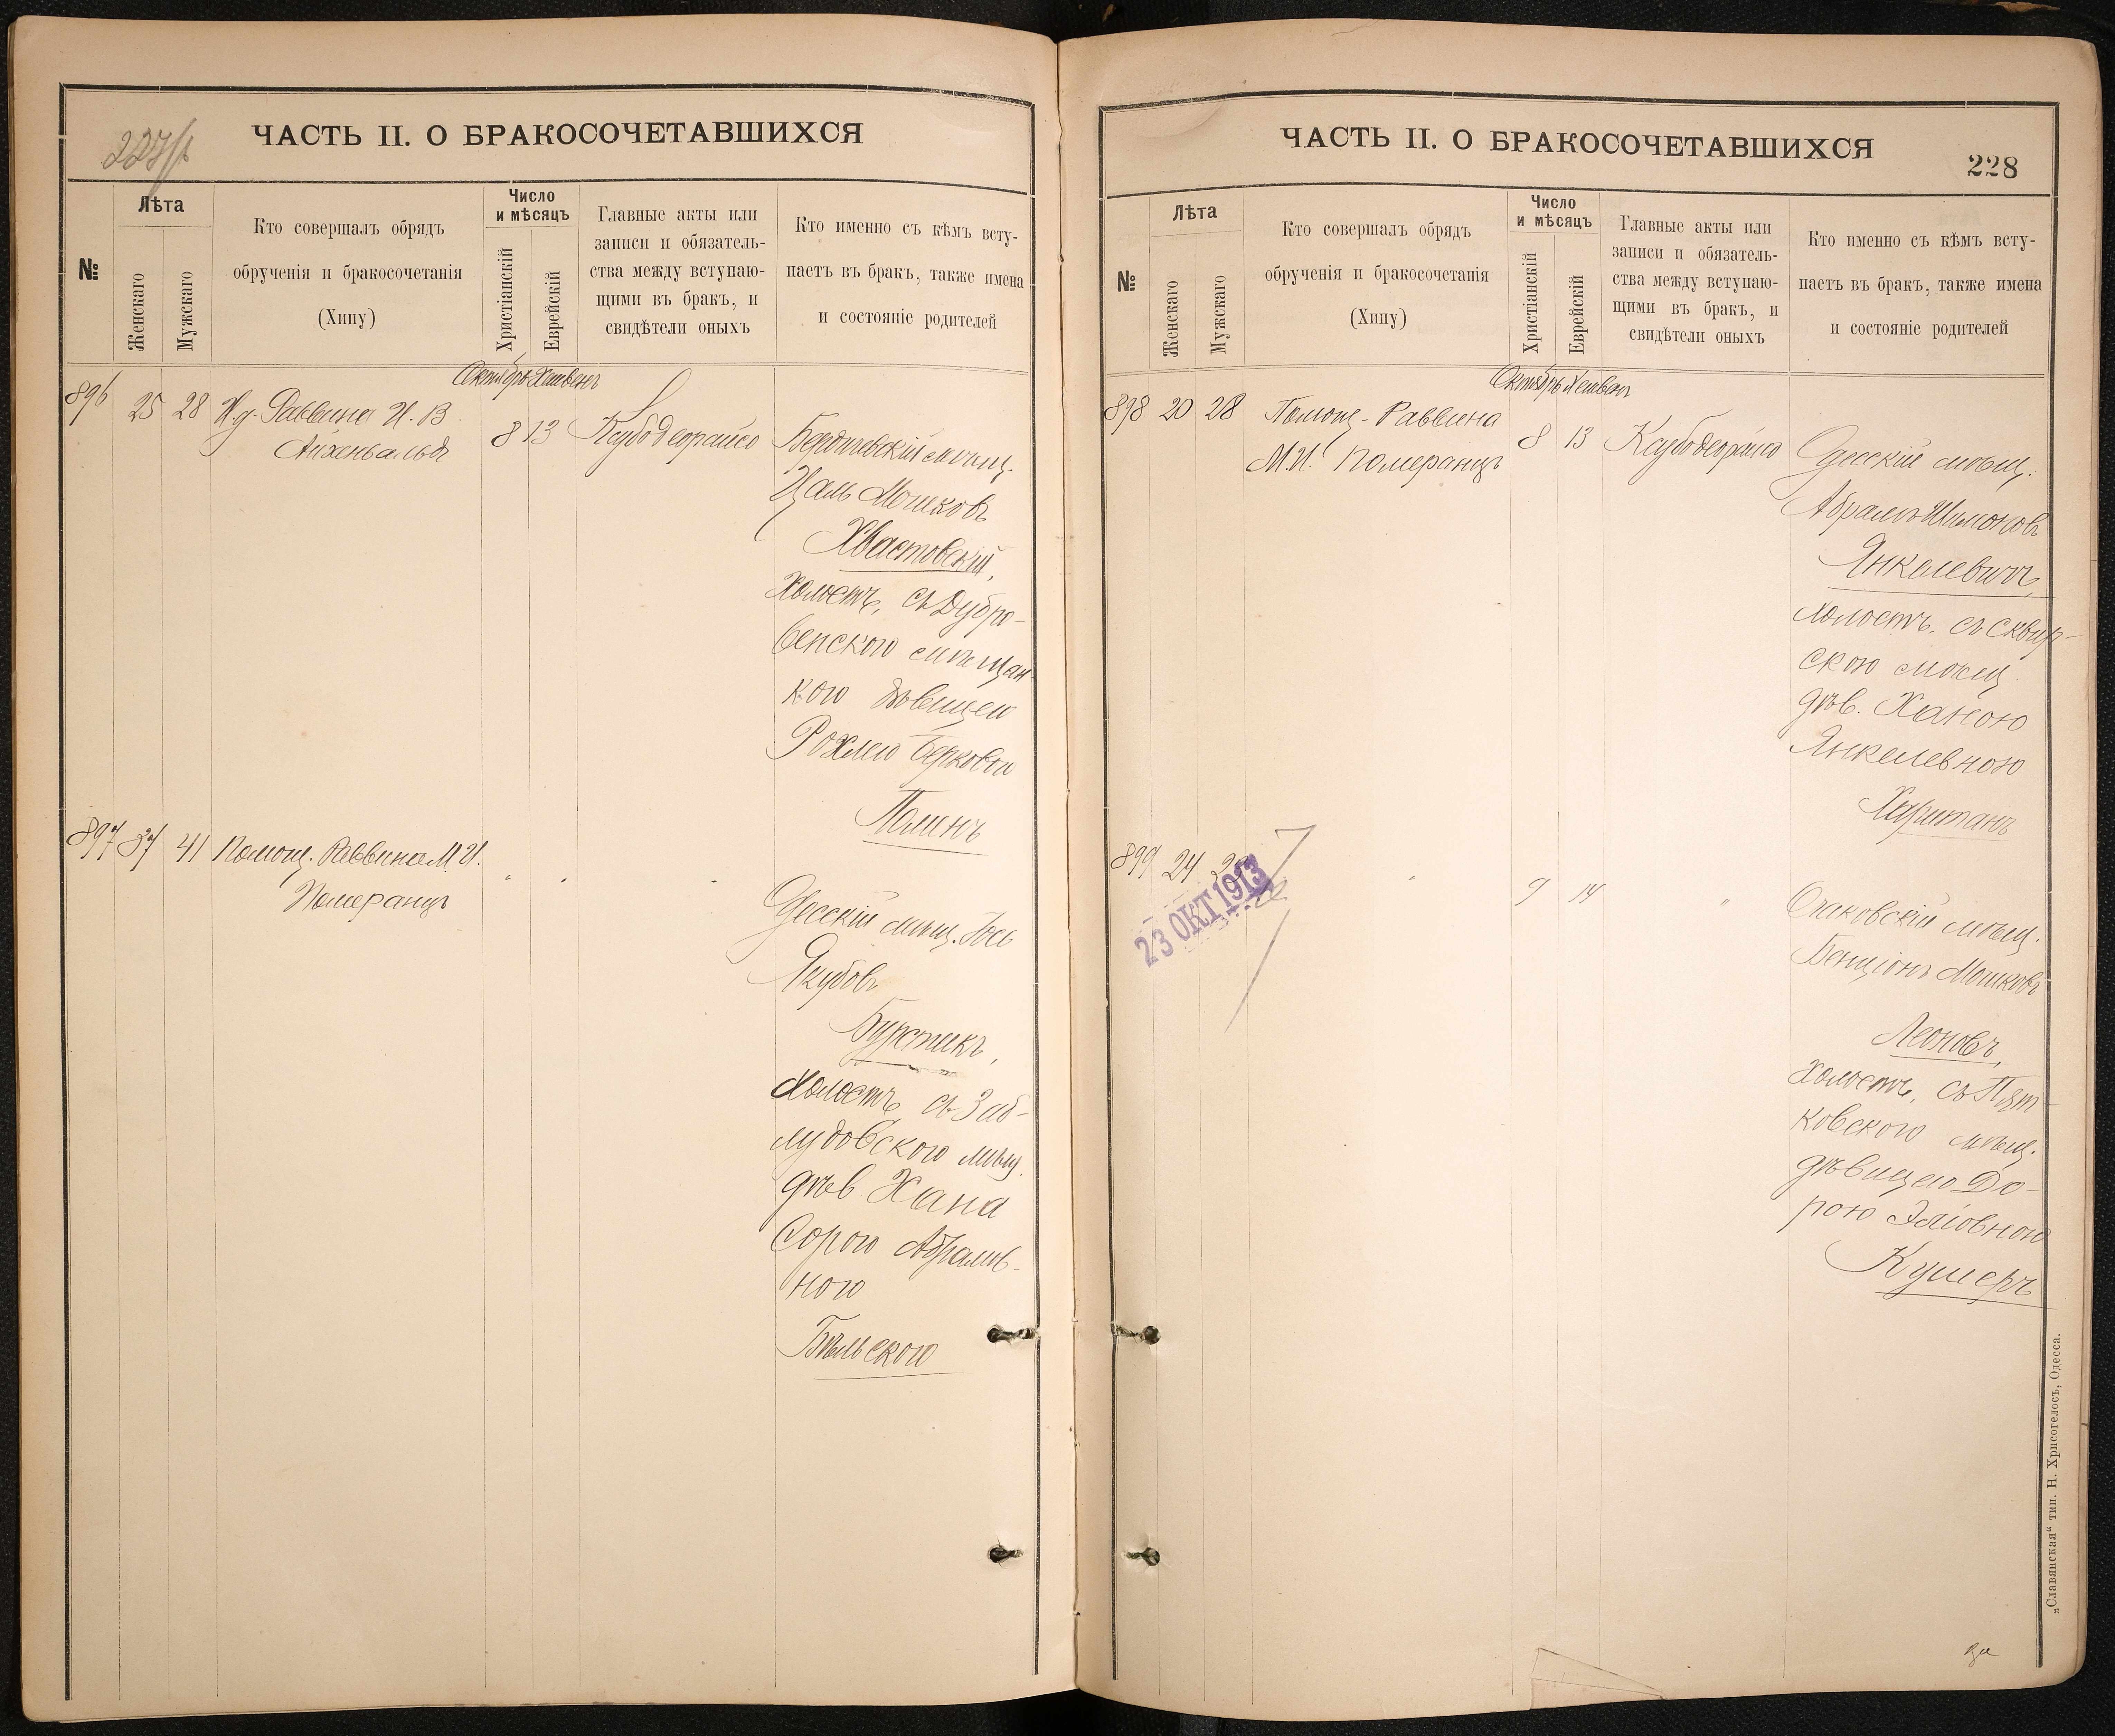 227/1
ЧАСТЬ II. О БРАКОСОЧЕТАВШИХСЯ
№
Лѣта
Женскаго
Мужскаго
Кто совершалъ обрядъ
обрученія и бракосочетанія
(Хипу)
Число
и мѣсяцъ
Христіанскій
Еврейскій
Главные акты или
записи и обязатель-
ства между вступаю-
щими въ бракъ, и
свидѣтели оныхъ
Кто именно съ кѣмъ всту-
паетъ въ бракъ, также имена
и состояніе родителей
Октябрь Хешвенъ
896 25 28 И. д. Раввина И. В.
Айхенвальдъ
8 13 Ксубодеорайсо
Бердичевскій мѣщ.
Цаль Мошковъ
Хвастовскій,
Холостъ, съ Дубро-
венскою мѣщан-
кою дѣвицею
Рохлею Берковой
Полинъ
897 37 41 Помощ. Раввина М. И.
Померанцъ
" " "
Одесскій мѣщ. Іось
Якубовъ
Бурстикъ,
Холостъ, съ Заб-
лудовскою мѣщ.
дѣв Хана
Сорою Абрамов-
ною
Бѣльскою
ЧАСТЬ II. О БРАКОСОЧЕТАВШИХСЯ
228
№
Лѣта
Женскаго
Мужскаго
Кто совершалъ обрядъ
обрученія и бракосочетанія
(Хипу)
Число
и мѣсяцъ
Христіанскій
Еврейскій
Главные акты или
записи и обязатель-
ства между вступаю-
щими въ бракъ, и
свидѣтели оныхъ
Кто именно съ кѣмъ всту-
паетъ въ бракъ, также имена
и состояніе родителей
Октябрь Хешван
898 20 28 Помощ. Раввина
М. И. Померанцъ
8 13 Ксубодеорайсо
Одесскій мѣщ.
Абрамъ Шимоновъ
Янкелевичъ,
холостъ, съ Сквир-
скою мѣщ.
дѣв. Ханою
Янкелевною
Хаританъ
899 24 25
23 ОКТ 1913
" 9 14 "
Очаковскій мѣщ.
Бенціонъ Мошковъ
Леоновъ,
холостъ, съ Пят-
ковскою мѣщ.
дѣвицею До-
рою Эліовною
Кушеръ
„Славянская“ тип. Н. Хрисогелосъ, Одесса.